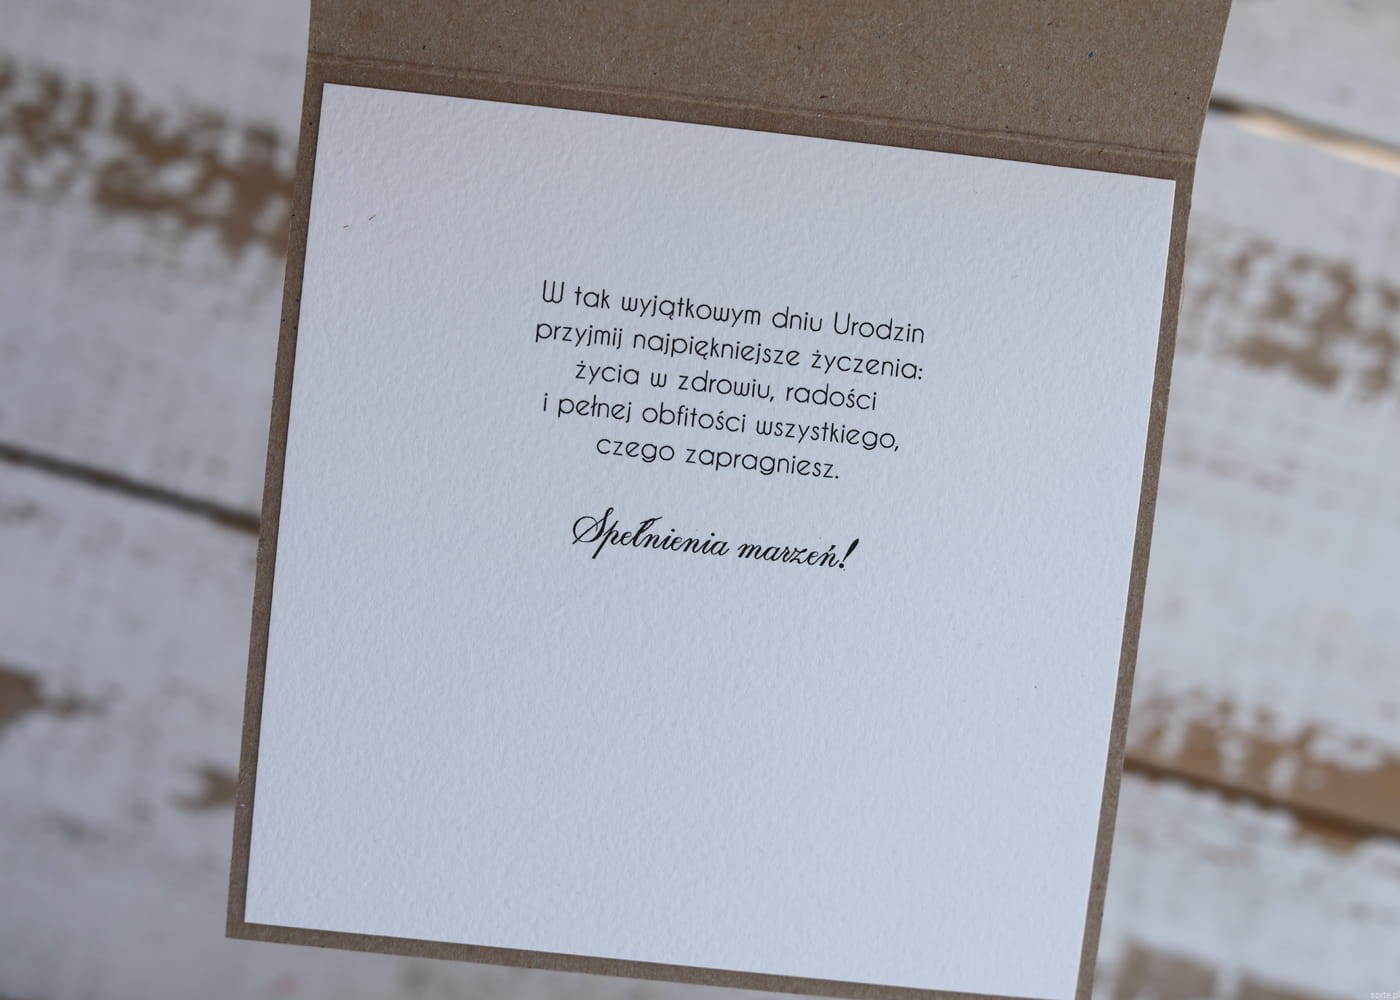 W tak wyjątkowym dniu Urodzin
przyjmij najpiękniejsze życzenia:
życia w zdrowiu, radości
i pełnej obfitości wszystkiego,
czego zapragniesz.
Spełnienia marzeń!